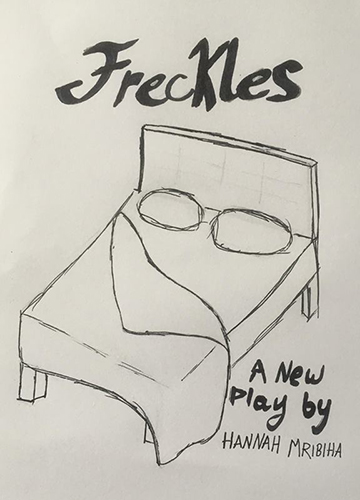 Freckles
A New
Play by
HANNAH MRIBIHA